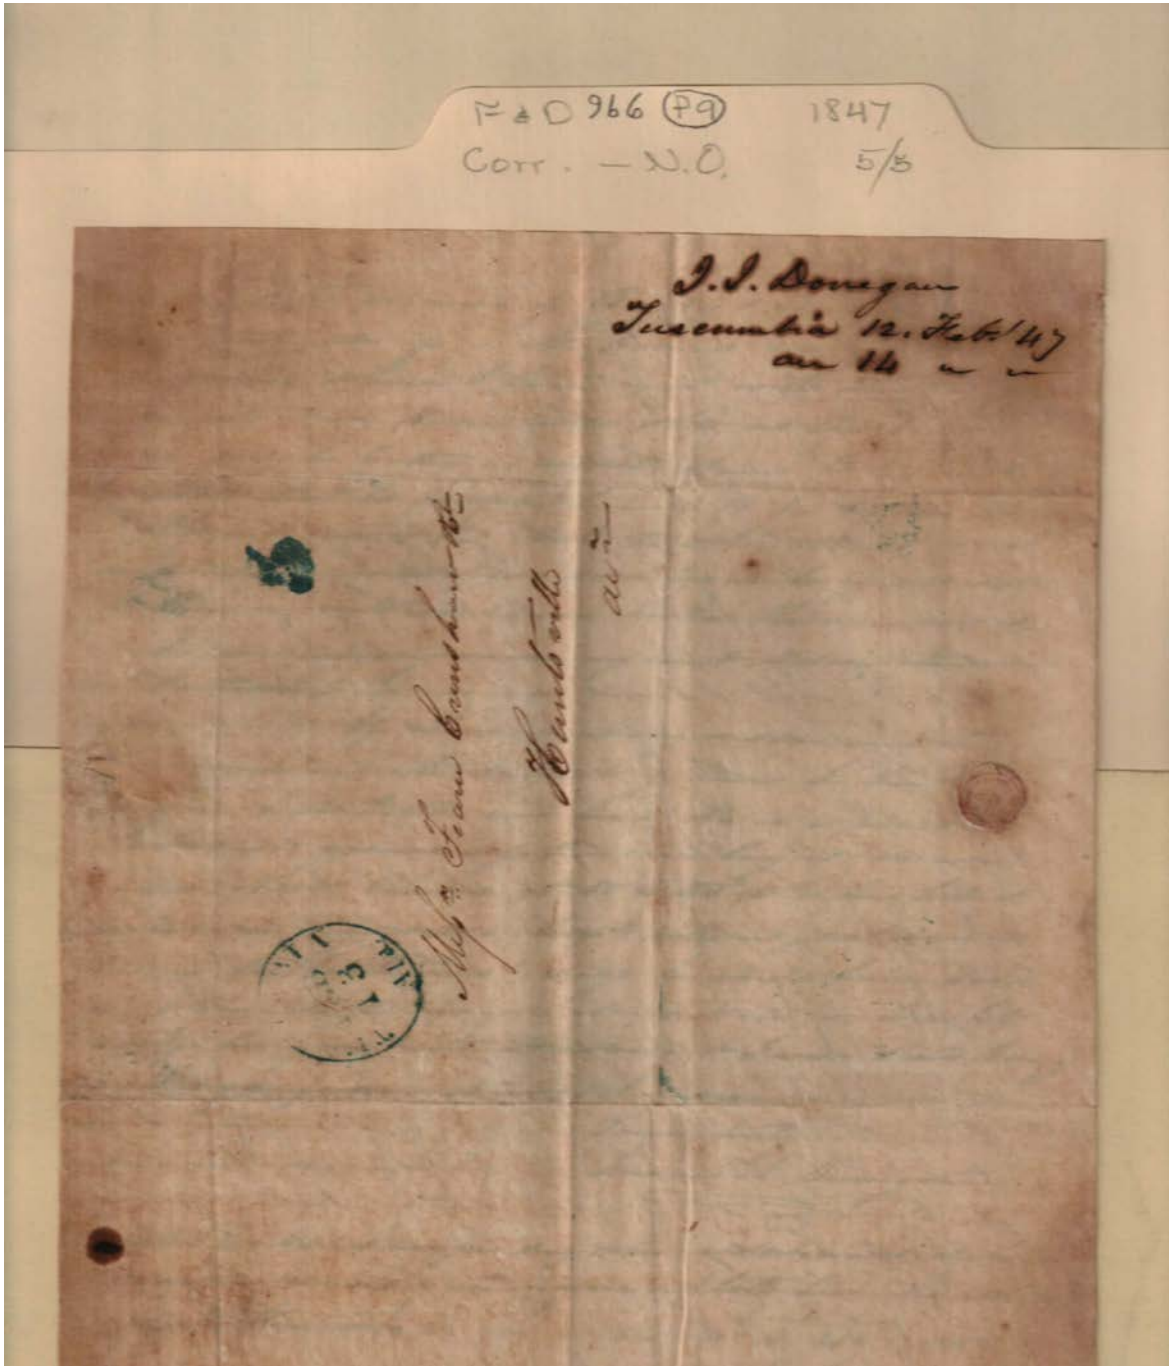 F & D 966 P9 1847
Corr. — N.O. 5/5
J. J. Donegan
Tuscumbia 12. Feb' 47
an 14 " "
Messrs Fearn Crenshaw &
Huntsville
13